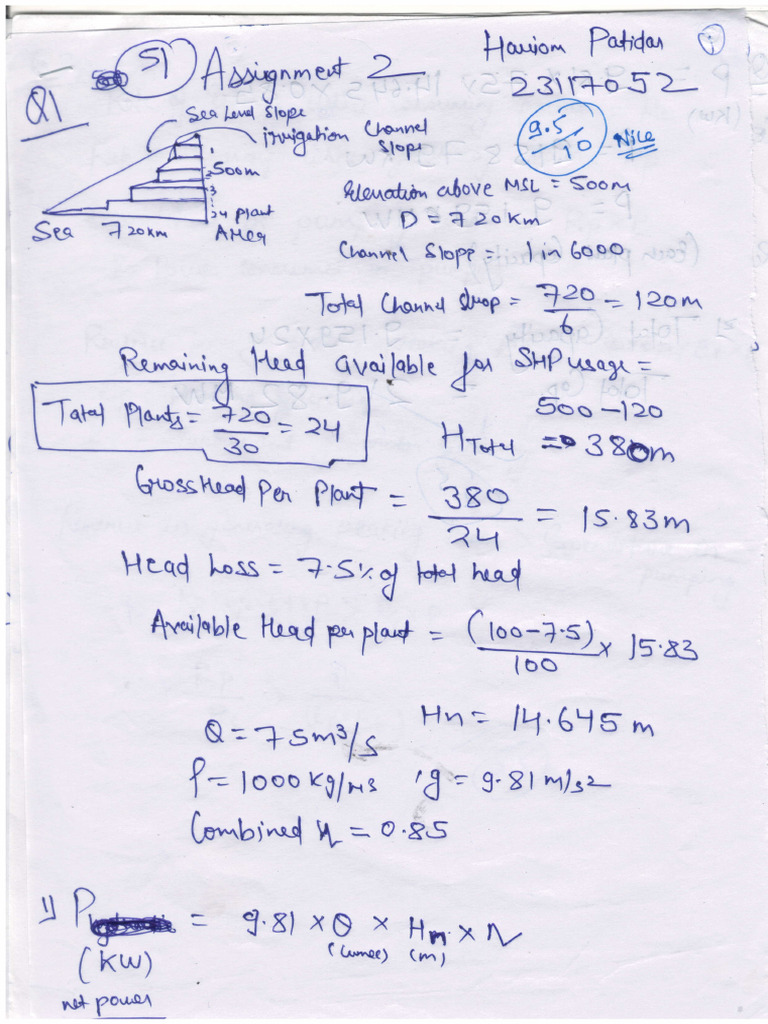 51 Assignment 2
Hariom Patidar
23117052
1
Q1
9.5/10 Nice
Sea Level Slope
irrigation Channel Slope
1
500m
2
3
24 plant
Sea 720km
Elevation above MSL = 500m
D = 720km
Channel Slope = 1 in 6000
Total Channel drop = 720/6 = 120m
Remaining Head available for SHP usage =
500-120
Total Plants = 720/30 = 24
HTotal = 380m
Gross Head Per Plant = 380/24 = 15.83m
Head Loss = 7.5% of total head
Available Head per plant = (100-7.5)/100 x 15.83
Hn = 14.645 m
Q = 75m³/s
ρ = 1000 kg/m3 , g = 9.81 m/s2
Combined η = 0.85
1) P = 9.81 x Q x Hn x η
(cumec) (m)
(KW)
net power